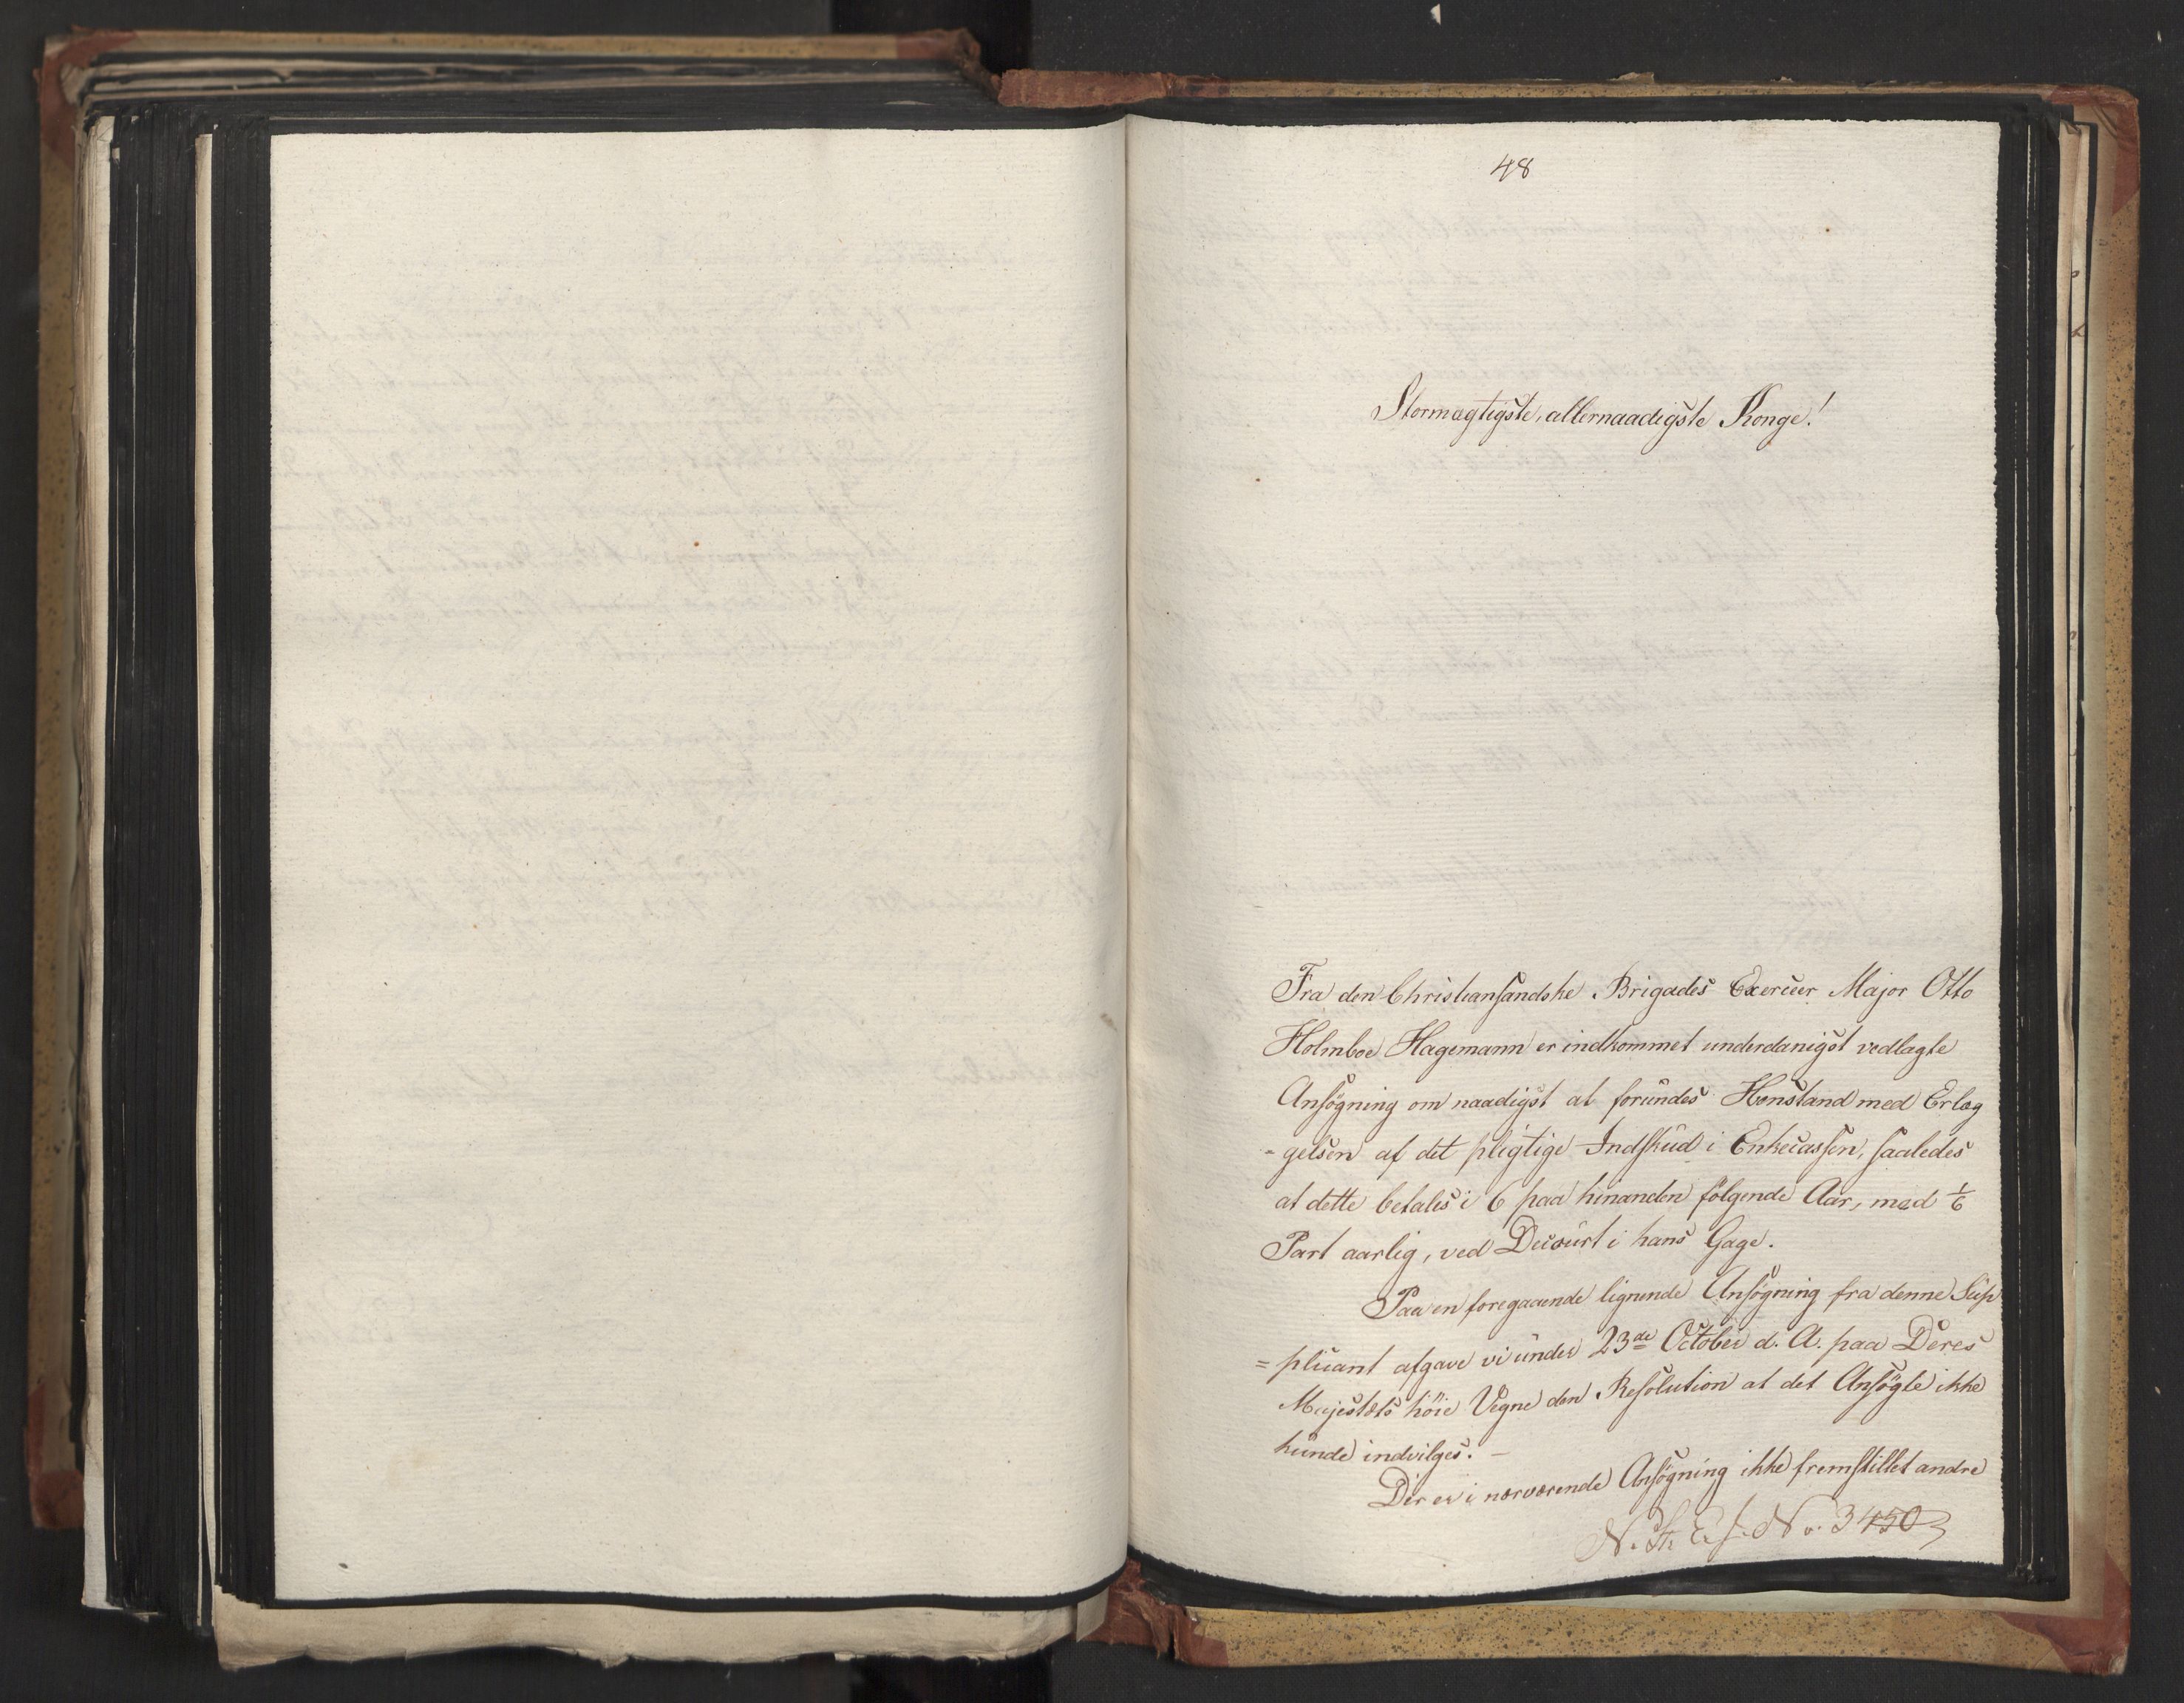 48
Stormægtigste, allernaadigste Konge!
Fra den Christiansandske Brigades Exerceer Major Otto
Holmboe Hagemann er indkommet underdanigst vedlagte
Ansøgning om naadigst at forundes Henstand med Erlæg
- gelsen af det pligtige Indskud i Enkecassen, saaledes
at dette betales i 6 paa hinanden følgende Aar, med 1/6
Part aarlig, ved Decourt i hans Gage.
Paa en foregaaende lignende Ansøgning fra denne Sup
= plicant afgave vi under 23de October d. A. paa Deres
Majestæts höie Vegne den Resolution at det Ansøgte ikke
kunde indvilges. –
Der er i nærværende Ansøgning ikke fremstillet andre
N. St. E. J. No. 3450